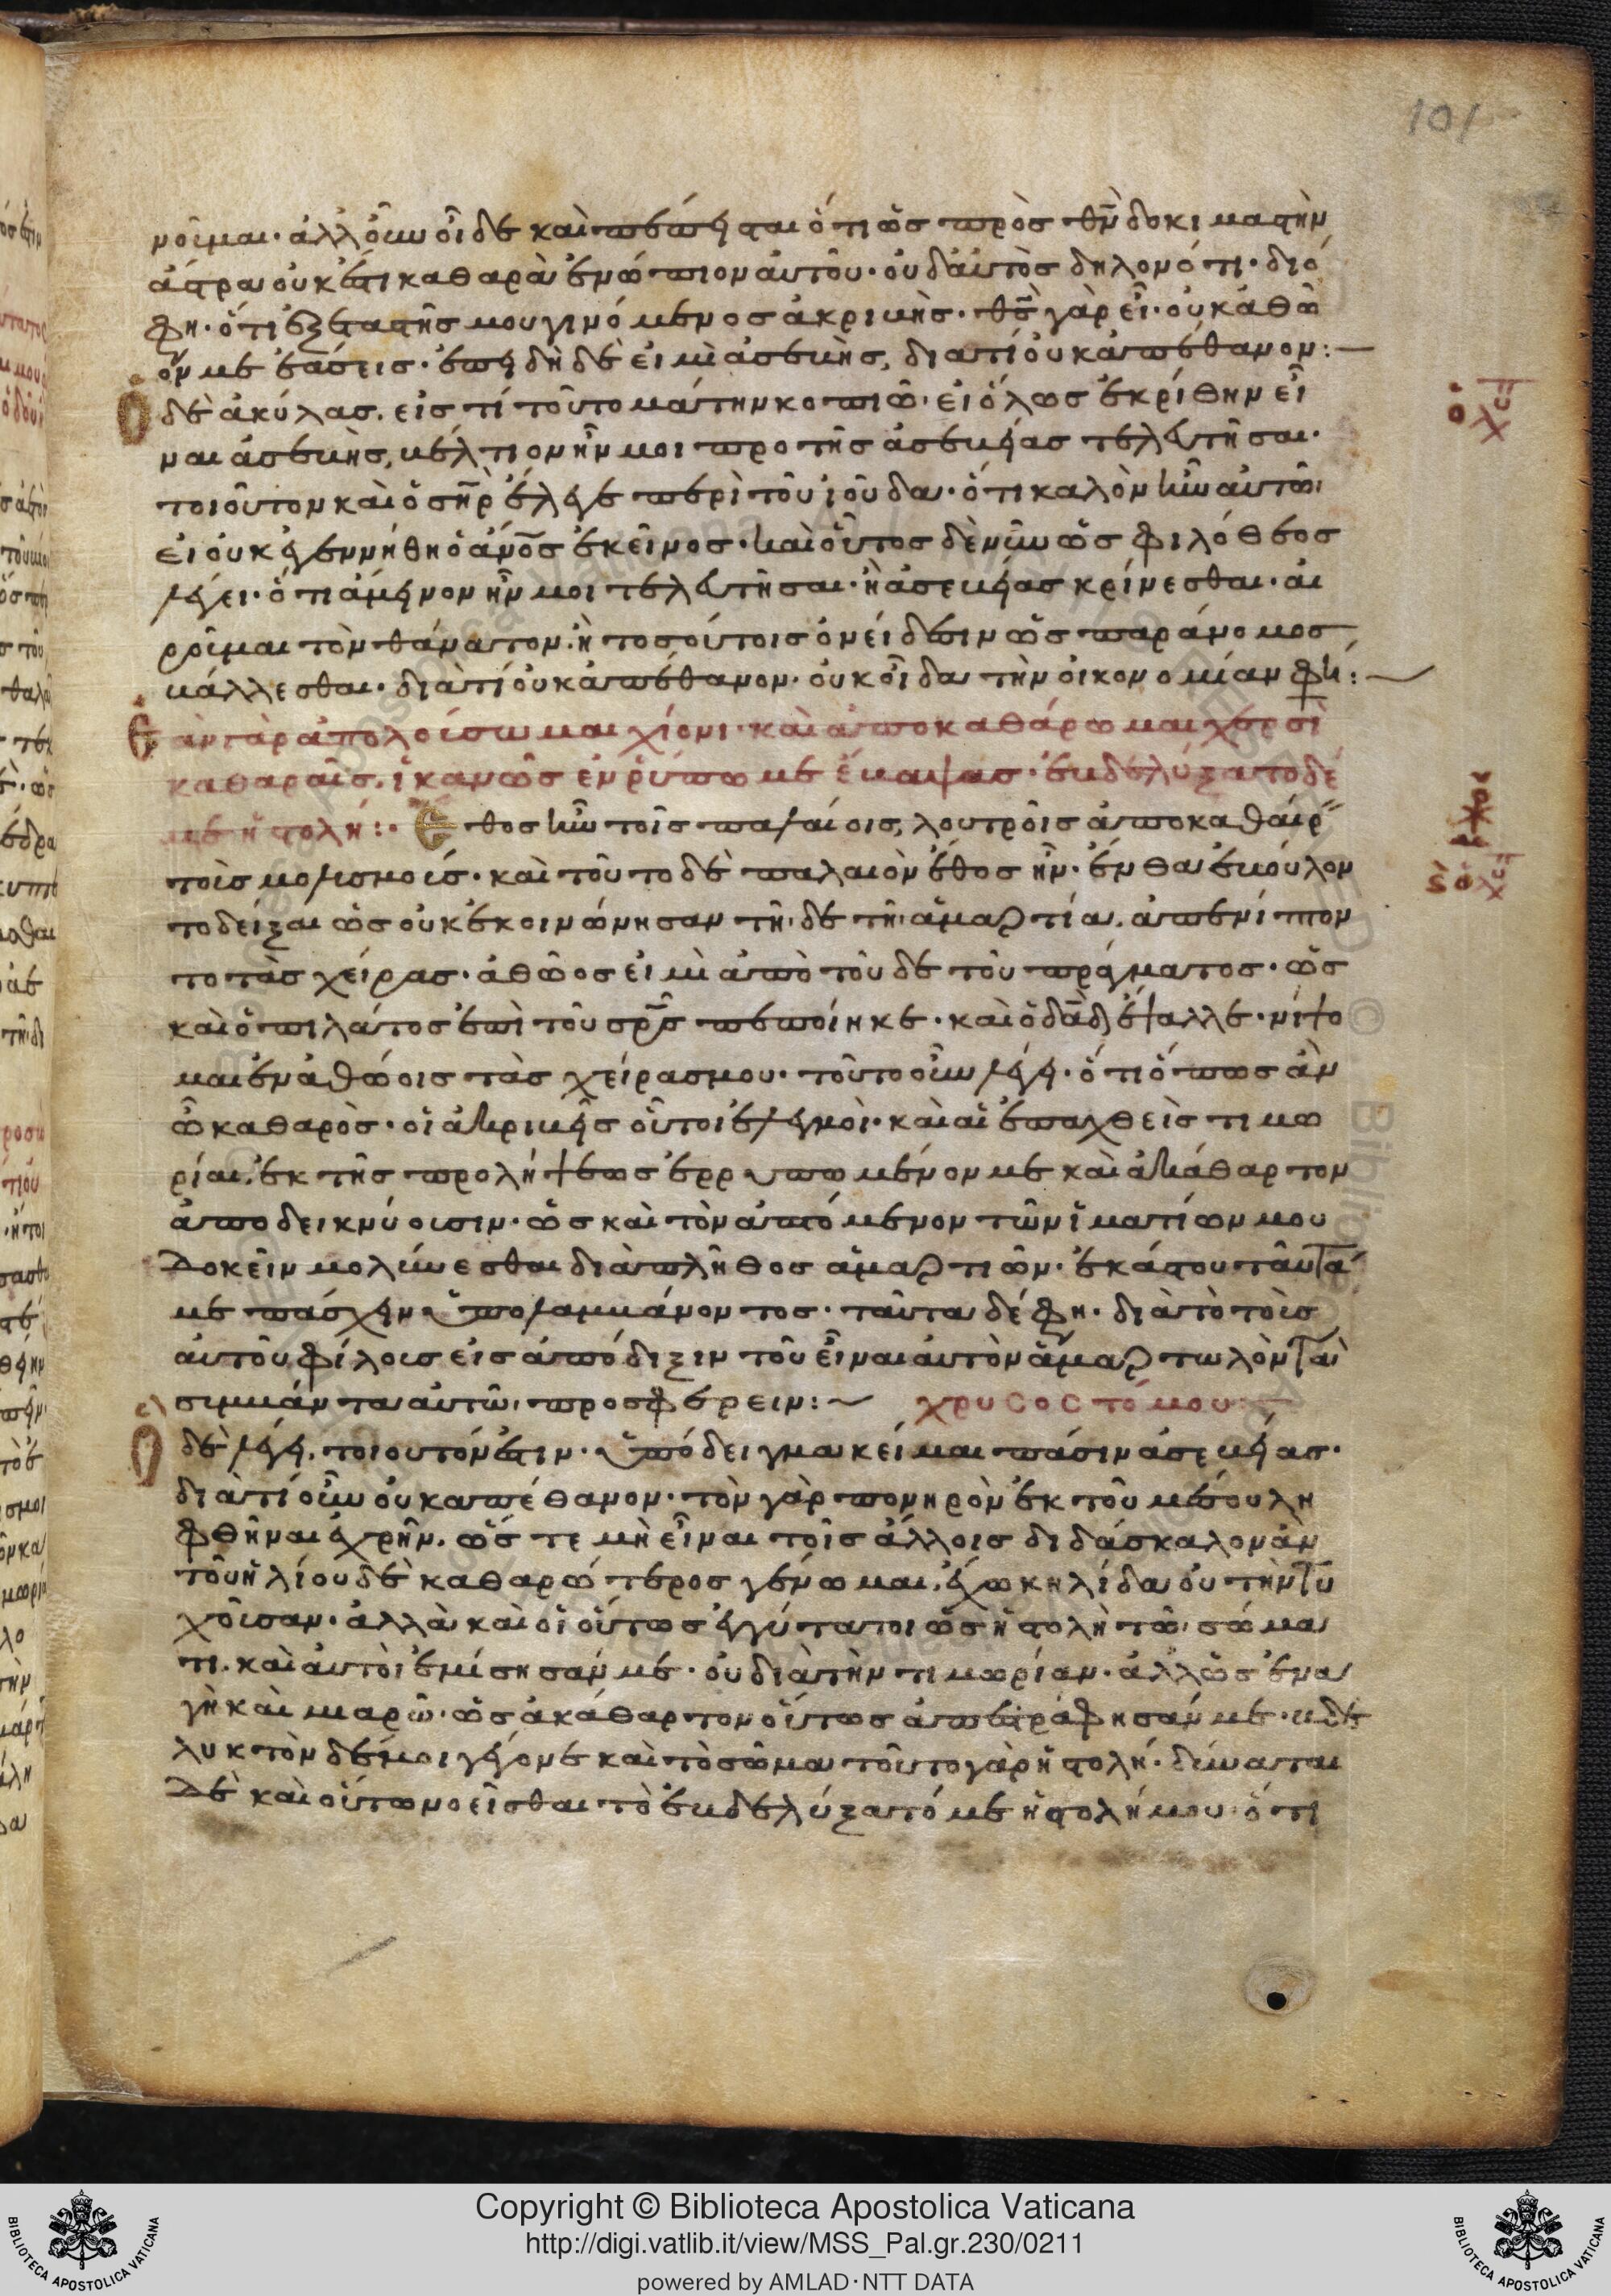 101
νοῖμαι· ἀλλ οὖν οἶδε καὶ πέπεισται ὅτι ὡς πρὸς θν δοκιμαστὴν
ἄστρα οὐκ ἔστι καθαρὰ ἐνώπιον αὐτοῦ· οὐδ αὐτὸς δηλονότι· διό
φη· ὅτι ἐξεταστής μου γινόμενος ἀκριβὴς· θς γὰρ εἶ· οὐκ ἀθῶ
όν με ἐάσεις· ἐπειδὴ δὲ εἰμὶ ἀσεβὴς, διατί οὐκ ἀπέθανον:
Ὁ δὲ ἀκύλας. εἰς τί τοῦτο μάτην κοπιῶ· εἰ ὅλως ἐκρίθην εἶ
ναι ἀσεβὴς, βέλτιον ἦν μοι πρὸ τῆς ἀσεβείας τελευτῆσαι·
τοιοῦτον καὶ ὁ σηρ ἔλεγε περὶ τοῦ ἰούδα· ὅτι καλὸν ἦν αὐτῶ
εἰ οὐκ ἐγεννήθη ὁ ανος ἐκεῖνος· καὶ οὗτος δὲ νῦν ὡς φιλόθεος
λέγει· ὅτι ἄμεινον ἦν μοι τελευτῆσαι· ἢ ἀσεβείας κρίνεσθαι· αἱ
ροῖμαι τὸν θάνατον· ἢ τοσούτοις ὀνείδεσιν ὡς παράνομος
βάλλεσθαι· διατί οὐκ ἀπέθανον· οὐκ οἶδα τὴν οἰκονομίαν φη:
Ἐὰν γὰρ ἀπολούσωμαι χιόνι· καὶ ἀποκαθάρωμαι χερσὶ
καθαραῖς. ἱκανῶς ἐν ῥύπω με ἔβαψας· ἐβδελύξατο δέ
με ἡ στολή:· Ἔθος ἦν τοῖς παλαιοῖς, λουτροῖς ἀποκαθαίρ
τοὶς μολυσμοίς· καὶ τοῦτο δὲ παλαιὸν ἔθος ἦν· ἔνθα ἐβούλον
το δεῖξαι ὡς οὐκ ἐκοινώνησαν τῆδε τῆ ἁμαρτία. ἀπενίπτον
το τὰς χεῖρας· ἀθῶος εἰμὶ ἀπὸ τοῦδε τοῦ πράγματος· ὡς
καὶ ὁ πιλάτος ἐπὶ τοῦ σρς πεποίηκε· καὶ ὁ δαδ ἔψαλλε· νίψο
μαι ἐν ἀθώοις τὰς χεῖρας μου· τοῦτο οὖν λέγει· ὅτι ὅπως ἂν
ὦ καθαρὸς· οἱ ἀκριβεῖς οὗτοι ἐλεγμοὶ· καὶ αἱ ἐπαχθεῖς τιμω
ρίαι. ἐκ τῆς προλήψεως ἐρρυπωμένον με καὶ ἀκάθαρτον
ἀποδεικνύουσιν· ὡς καὶ τὸν ἁπτόμενον τῶν ἱματίων μου
δοκεῖν μολύνεσθαι διὰ πλῆθος ἁμαρτιῶν· ἑκάστου ταῦτά
με πάσχειν ὑπολαμβάνοντος· ταῦτα δέ φη· διὰ τὸ τοὺς
αὐτοῦ φίλους εἰς ἀπόδιξιν τοῦ εἶναι αὐτὸν ἁμαρτωλὸν τὰ
συμβάντα αὐτῶ προσφέρειν: χρυσοστόμου:
Ὁ δὲ λέγει. τοιουτόν ἐστιν· ὑπόδειγμα κεῖμαι πᾶσιν ἀσεβείας·
διατί οὖν οὐκ απέθανον· τὸν γὰρ πονηρὸν ἐκ τοῦ μέσου λη
φθῆναι ἐχρῆν. ὥς τε μὴ εἶναι τοῖς ἄλλοις διδάσκαλον ἂν
τοῦ ἡλίου δὲ καθαρώτερος γένωμαι. ἔχω κηλίδα οὐ τὴν τυ
χοῦσαν· ἀλλὰ καὶ οἱ οὕτως ἐγγύτατοι ὡς ἡ στολὴ τῶ σώμα
τι. καὶ αὐτοὶ ἐμίσησάν με· οὐ διὰ τὴν τιμωρίαν· ἀλλ ὡς ἐνα
γῆ καὶ μιαρῶ· ὡς ἀκάθαρτον οὕτως ἀπεστράφησάν με· βδε
λυκτὸν δέ μοι γέγονε καὶ τὸ σῶμα τοῦτο γὰρ ἡ στολή· δύναται
δὲ καὶ οὕτω νοεῖσθαι τὸ ἐβδελύξατό με ἡ στολή μου· ὅτι
Copyright © Biblioteca Apostolica Vaticana
http://digi.vatlib.it/view/MSS_Pal.gr.230/0211
powered by AMLAD·NTT DATA
BIBLIOTECA APOSTOLICA VATICANA
BIBLIOTECA APOSTOLICA VATICANA